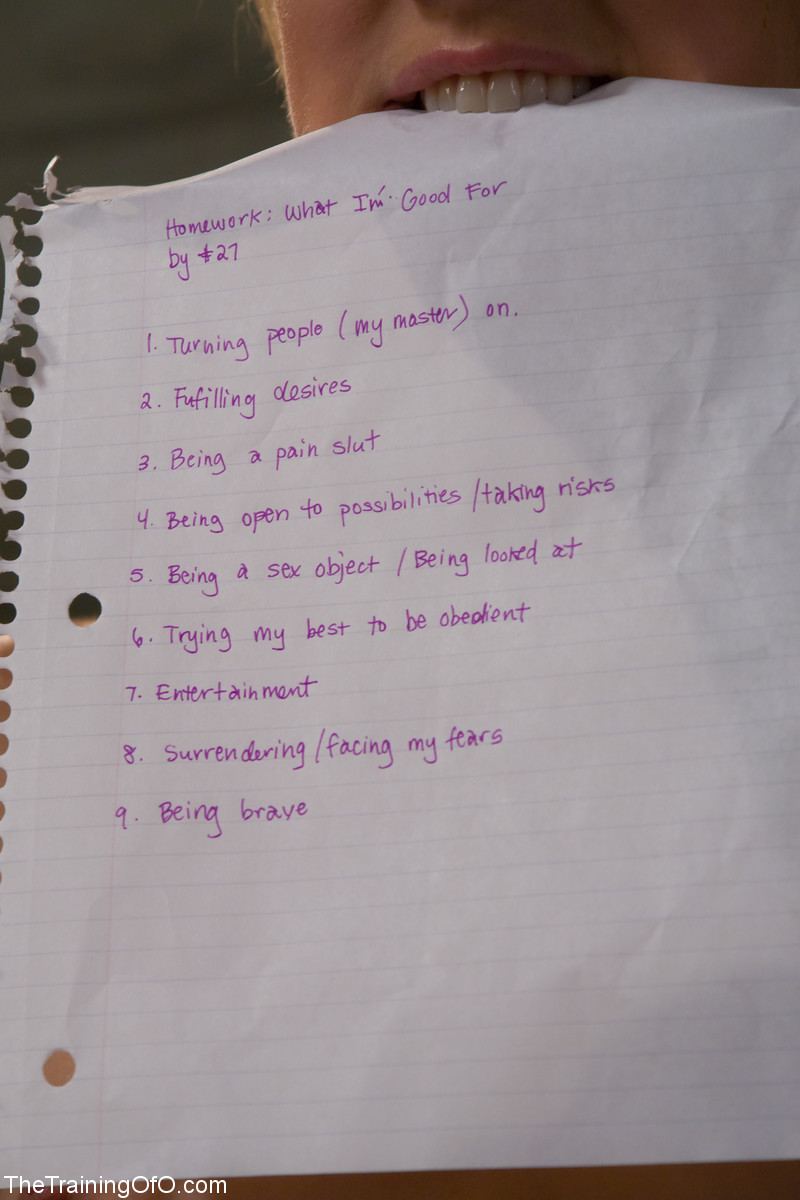 Homework: What I'm Good For
by #27
1. Turning people (my master) on.
2. Fufilling desires
3. Being a pain slut
4. Being open to possibilities / taking risks
5. Being a sex object / Being looked at
6. Trying my best to be obedient
7. Entertainment
8. Surrendering / facing my fears
9. Being brave
TheTrainingOfO.com